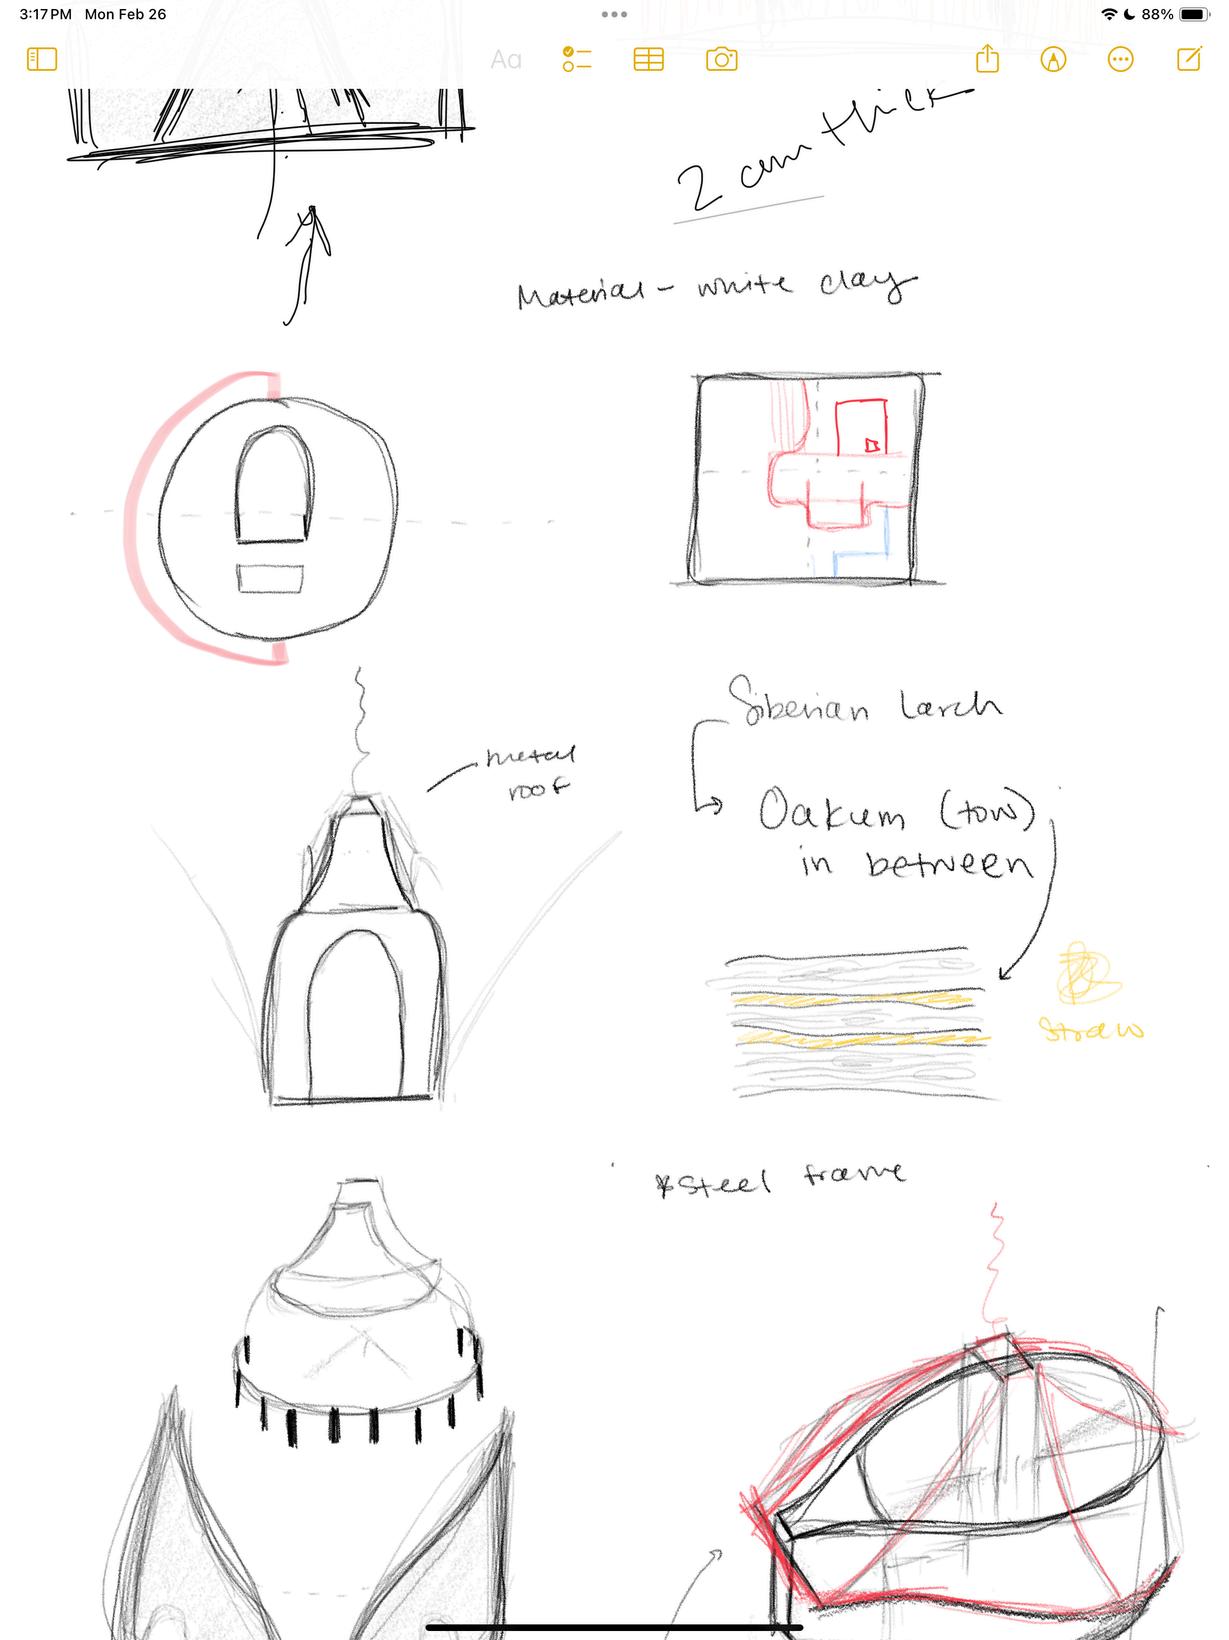 3:17 PM Mon Feb 26
88%
Aa
2 cm thick
Material - white clay
Siberian Larch
metal
roof
Oakum (tow)
in between
Straw
*Steel frame